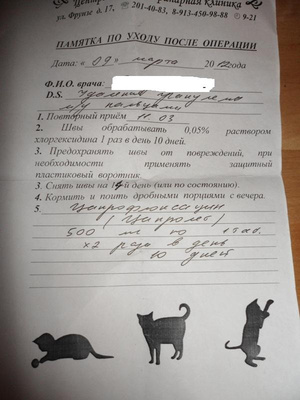 Центр
клиника
ул. Фрунзе д. 17, ☎ 201-40-83, 8-913-450-98-88 9-21
ПАМЯТКА ПО УХОДУ ПОСЛЕ ОПЕРАЦИИ
Дата: « 09 » марта 2012года
Ф.И.О. врача:
D.S. Удаление гранулемы
м/у пальцами
1. Повторный приём 11.03
2. Швы обрабатывать 0,05% раствором
хлоргексидина 1 раз в день 10 дней.
3. Предохранять швы от повреждений, при
необходимости применять защитный
пластиковый воротник.
3. Снять швы на 14й день (или по состоянию).
4. Кормить и поить дробными порциями с вечера.
5 Ципрофлоксацин
(Ципролет)
500 1 таб.
x2 раза в день
10 дней